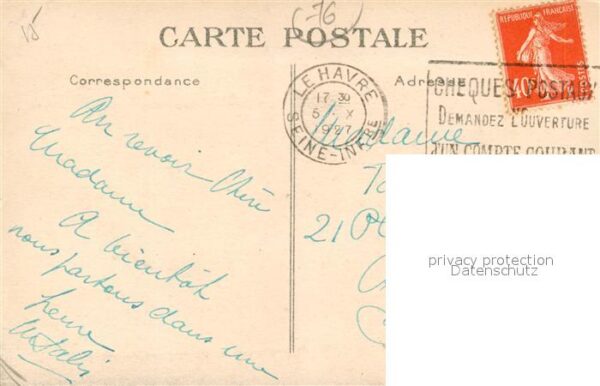 15
(76)
CARTE POSTALE
Correspondance
Adresse
RÉPUBLIQUE FRANÇAISE
40
POSTES
LE HAVRE
17 30
5 X
1927
SEINE-INFRE
CHEQUES POSTAUX
DEMANDEZ L'OUVERTURE
D'UN COMPTE COURANT
Au revoir Chère
Madame
A bientôt
nous partons dans une
heure
Madame
21 Pl
privacy protection
Datenschutz